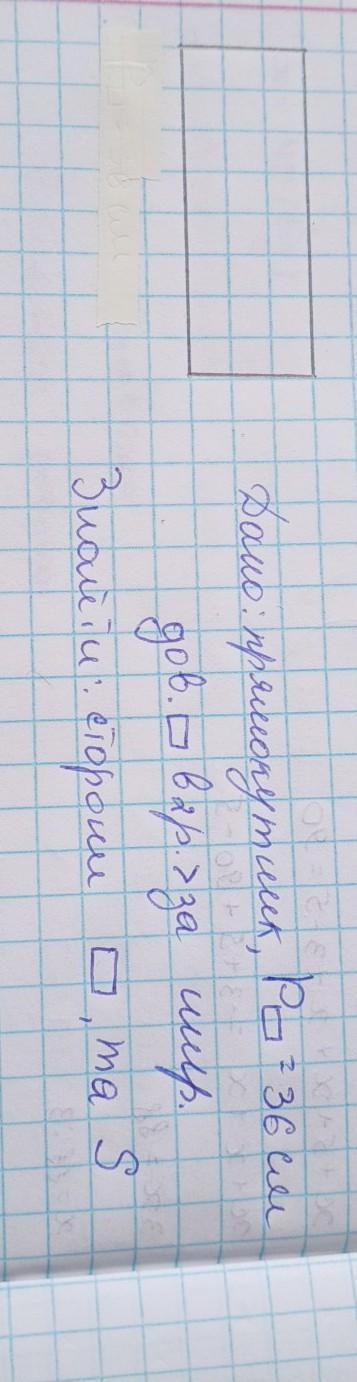 Дано: прямокутник, P▭ = 36 см
дов. ▭ в 2 р. > за шир.
Знайти: сторони ▭, та S